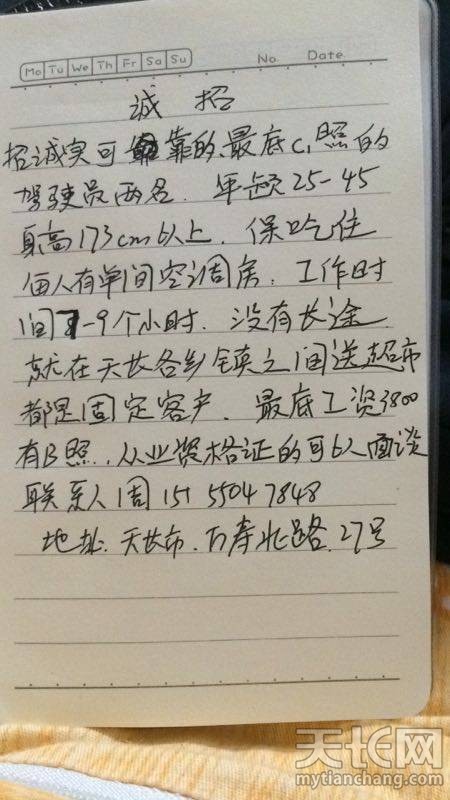 Mo Tu We Th Fr Sa Su No. Date.
诚 招
招诚实可靠的、最底C1照的
驾驶员两名. 年龄25-45
身高173cm以上. 保吃住
每人有单间空调房. 工作时
间 -9个小时. 没有长途
就在天长各乡镇之间送超市
都是固定客户. 最底工资3800
有B照. 从业资格证的可以面谈
联系人:周 151 5504 7848
地址: 天长市. 万寿北路. 27号
天长网
mytianchang.com